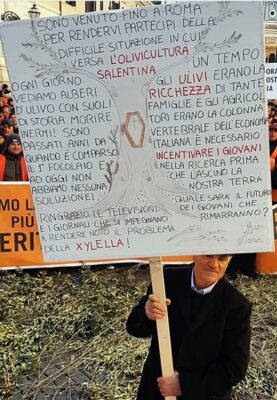 SONO VENUTO FINO A ROMA
PER RENDERVI PARTECIPI DELLA
DIFFICILE SITUAZIONE IN CUI
VERSA L'OLIVICOLTURA
SALENTINA
OGNI GIORNO
VEDIAMO ALBERI
D'ULIVO CON SUOLI
DI STORIA MORIRE
INERMI! SONO
PASSATI ANNI DA
QUANDO È COMPARSO
IL 1° FOCOLAIO E
AD OGGI NON
ABBIAMO NESSUNA
SOLUZIONE!
RINGRAZIO LE TELEVISIONI
E I GIORNALI CHE SI IMPEGNANO
A RENDERE NOTO IL PROBLEMA
DELLA XYLELLA!
UN TEMPO
GLI ULIVI ERANO LA
RICCHEZZA DI TANTE
FAMIGLIE E GLI AGRICOL
TORI ERANO LA COLONNA
VERTEBRALE DELL'ECONOMIA
ITALIANA. È NECESSARIO
INCENTIVARE I GIOVANI
NELLA RICERCA PRIMA
CHE LASCINO LA
NOSTRA TERRA
QUALE SARÀ IL FUTURO
DEI GIOVANI CHE
RIMARRANNO?